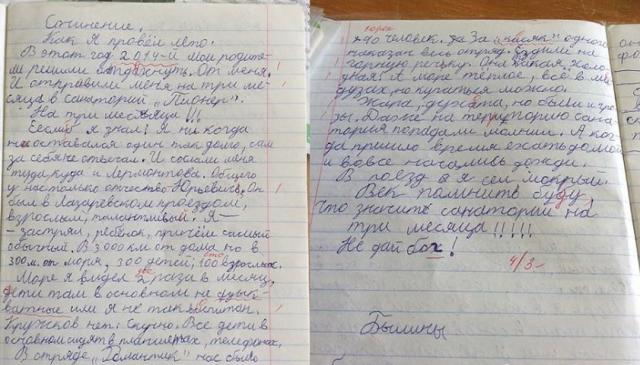 Сочинение.
Как я провёл лето.
В этот год 2014-й мои родите-
ли решили отдохнуть. От меня.
И отправили меня на три ме-
сяца в санаторий „Пионер".
На три месяца!!!
Еслиб я знал! Я ни когда
не оставался один так долго, сам
за себя не отвечал. И сослали меня
туда, куда и Лермонтова. Общего
у нас только отчество Юрьевич. Он
был в Лазаревском проездом,
взрослый, талантливый. Я –
– застрял, ребёнок, причём самый
обычный. В 3000 км от дома но в
300м. от моря, 300 детей, 100 взрослых.
сто
Море я видел 2 раза в месяц,
дети там в основном не
или я не так воспитан.
Кружков нет. Скучно. Все дети в
основном сидят в планшетах, телефонах.
В отряде „Романтик" нас было
сорок
40 человек. За „косяк" одного
наказан весь отряд. Ездили на
горную речку. Она какая холо-
дная! А море тёплое, всё в ме-
дузах, но купаться можно.
Жара, духота, но были и гро-
зы. Даже на территорию сана-
тория попадали молнии. А ког-
да пришло время ехать домой
и вовсе начались дожди.
В поезд я сел мокрый.
Век помнить буду,
что значить санаторий на
три месяца!!!!!
Не дай бох!
4/3-
Былины